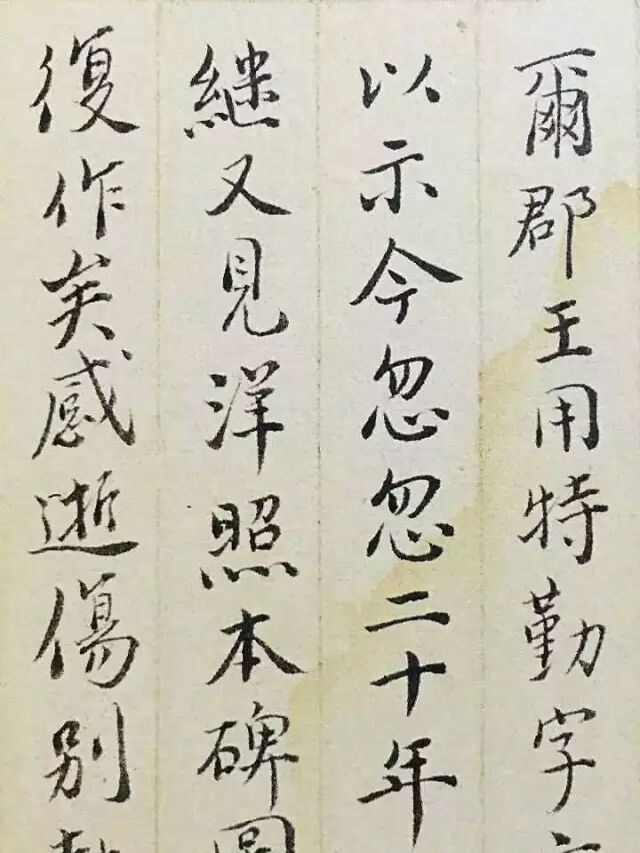 爾郡王用特勤字
以示今忽忽二十年
継又見洋照本碑圓
復作矣感逝傷别